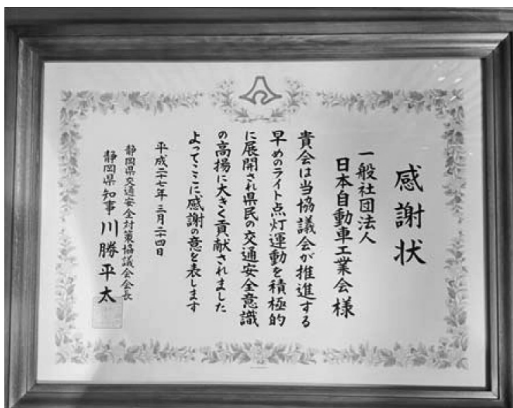 感謝状
一般社団法人
日本自動車工業会様
貴会は当協議会が推進する
早めのライト点灯運動を積極的
に展開され県民の交通安全意識
の高揚に大きく貢献されました
よってここに感謝の意を表します
平成二十七年三月二十四日
静岡県交通安全対策協議会会長
静岡県知事 川勝平太